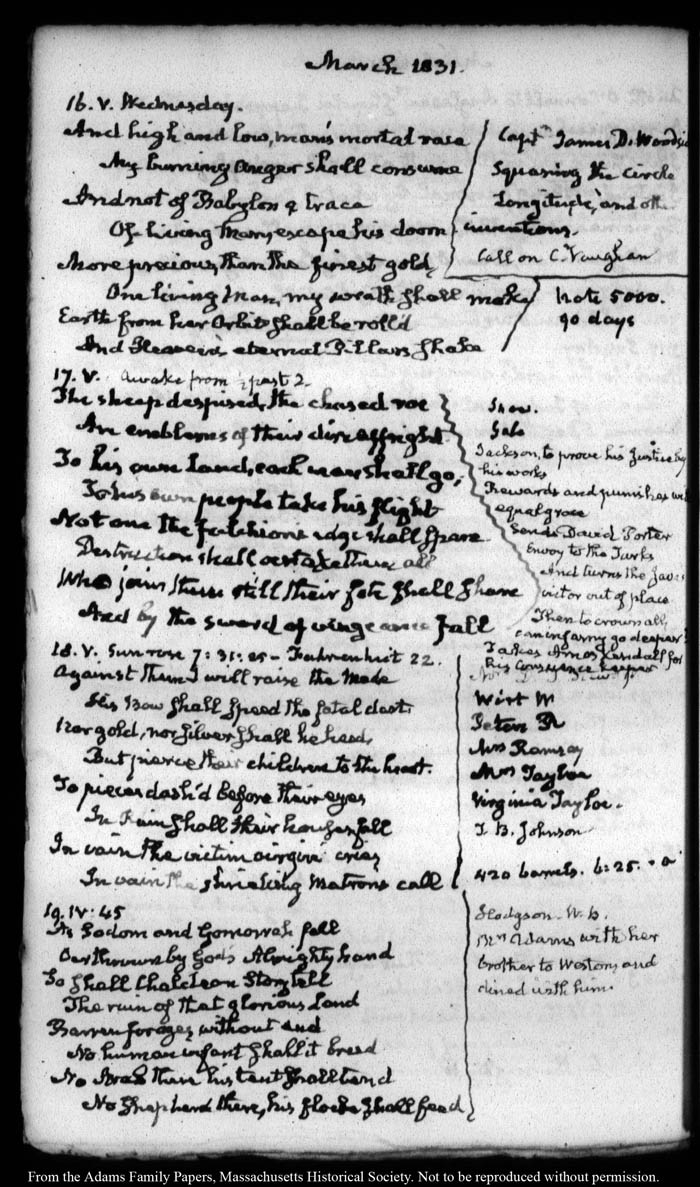 March 1831.
16. V. Wednesday.
And high and low, man's mortal race
My burning anger shall consume
And not of Babylon a trace
Or living Man, escape his doom
More precious than the finest gold,
One living Man, my wrath shall make
Earth from her Orbit shall be roll'd
And Heaven's eternal Pillars shake
Capt. James D. Woodsi
Squaring the circle
Longitude, and oth
inventions.
Call on C. Vaughan
Note 5000.
90 days
17. V. Awake from ½ past 2
The sheep despised, the chased roe
Are emblems of their dire affright
To his own land, each man shall go,
To his own people take his flight
Not one the falchion's edge shall spare
Destruction shall overtake them all
Who joins them still their fate shall share
And by the sword of vengeance fall
Snow.
Gale
Jackson, to prove his justice by
his works
Rewards and punishes wi
equal grace
Sends David Porter
Envoy to the Turks
And turns the
victor out of place
Then to crown all,
can infamy go deeper?
Takes Amos Kendall for
his Conscience keeper
18. V. Sun rose 7:31:25 - Fahrenheit 22.
Against them I will raise the Mede
His Bow shall speed the fatal dart
Nor gold, nor silver shall he heed,
But pierce their children to the heart.
To pieces dash'd before their eyes
In Ruin shall their houses fall
In vain the victim virgins' cries
In vain the shrieking Matrons call
Wirt W
Peter
Mrs Ramsay
Mrs Tayloe
Virginia Tayloe.
J. B. Johnson
420 barrels. 6:25.
19. IV: 45
As Sodom and Gomorrah fell
Oerthrown by God's Almighty hand
So shall Chaldean Story tell
The ruin of that glorious Land
Barren for ages, without end
No human infant shall it breed
No Arab there his tent shall tend
No Shepherd there, his flocks shall feed
Hodgson. W. B.
Mrs Adams with her
brother to Westons and
dined with him.
From the Adams Family Papers, Massachusetts Historical Society. Not to be reproduced without permission.